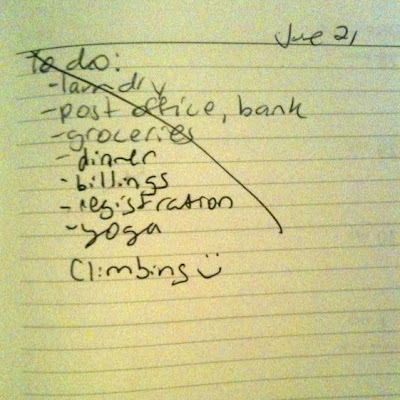 June 21
To do:
-laundry
-post office, bank
-groceries
-dinner
-billings
-registration
-yoga
Climbing :)